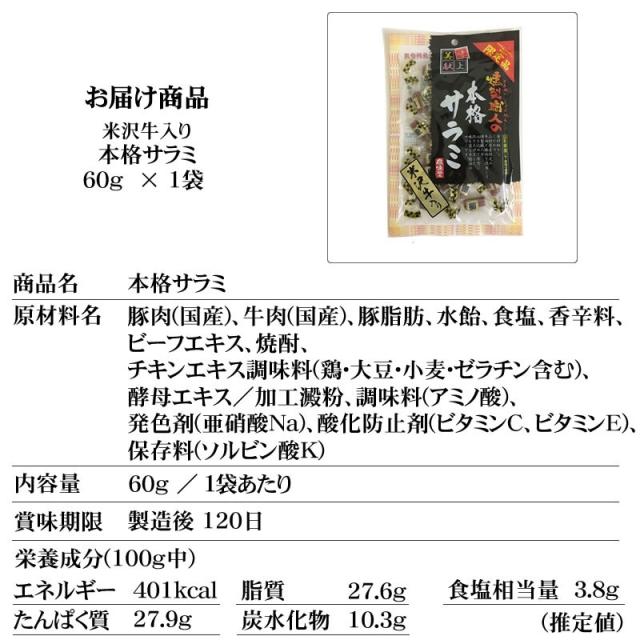 お届け商品
米沢牛入り
本格サラミ
60g × 1袋
限定品
燻製職人の
本格
サラミ
米沢牛入り
商品名 本格サラミ
原材料名 豚肉(国産)、牛肉(国産)、豚脂肪、水飴、食塩、香辛料、
ビーフエキス、焼酎、
チキンエキス調味料(鶏・大豆・小麦・ゼラチン含む)、
酵母エキス／加工澱粉、調味料(アミノ酸)、
発色剤(亜硝酸Na)、酸化防止剤(ビタミンC、ビタミンE)、
保存料(ソルビン酸K)
内容量 60g ／ 1袋あたり
賞味期限 製造後 120日
栄養成分(100g中)
エネルギー 401kcal 脂質 27.6g 食塩相当量 3.8g
たんぱく質 27.9g 炭水化物 10.3g (推定値)